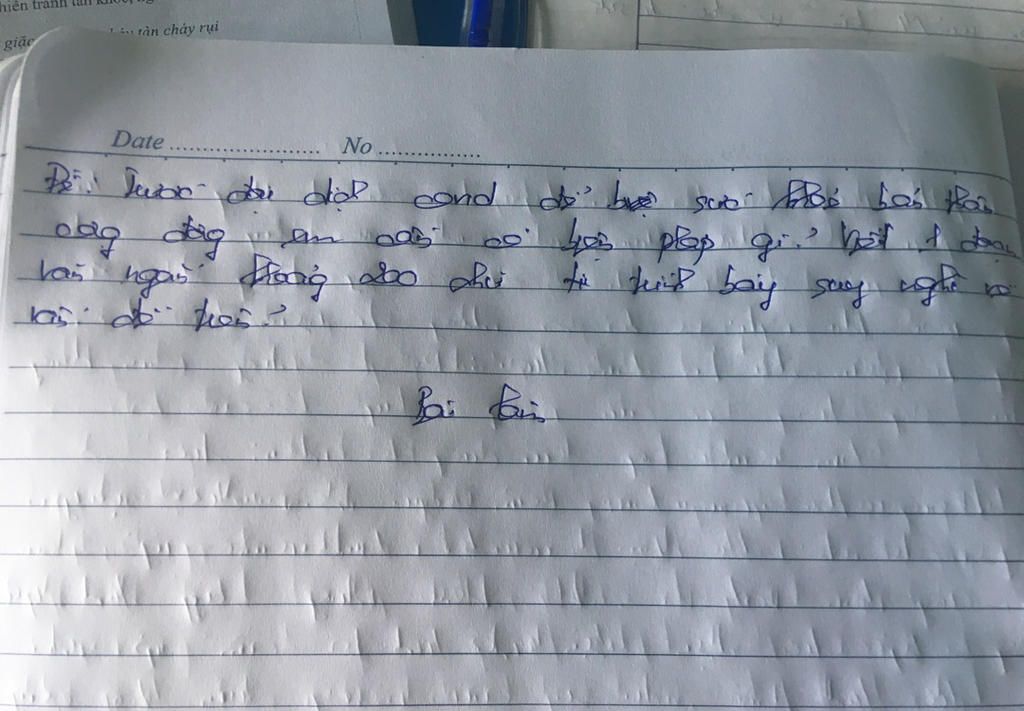 hiên tranh tàn khốc, ng
giặc tàn cháy rụi
Date ........................ No ................
Đề: Trước đại dịch covid để sức
cộng đồng em cần có biện pháp gì? Viết 1 đoạn
văn ngắn khoảng 200 chữ từ trình bày suy nghĩ
Bài làm